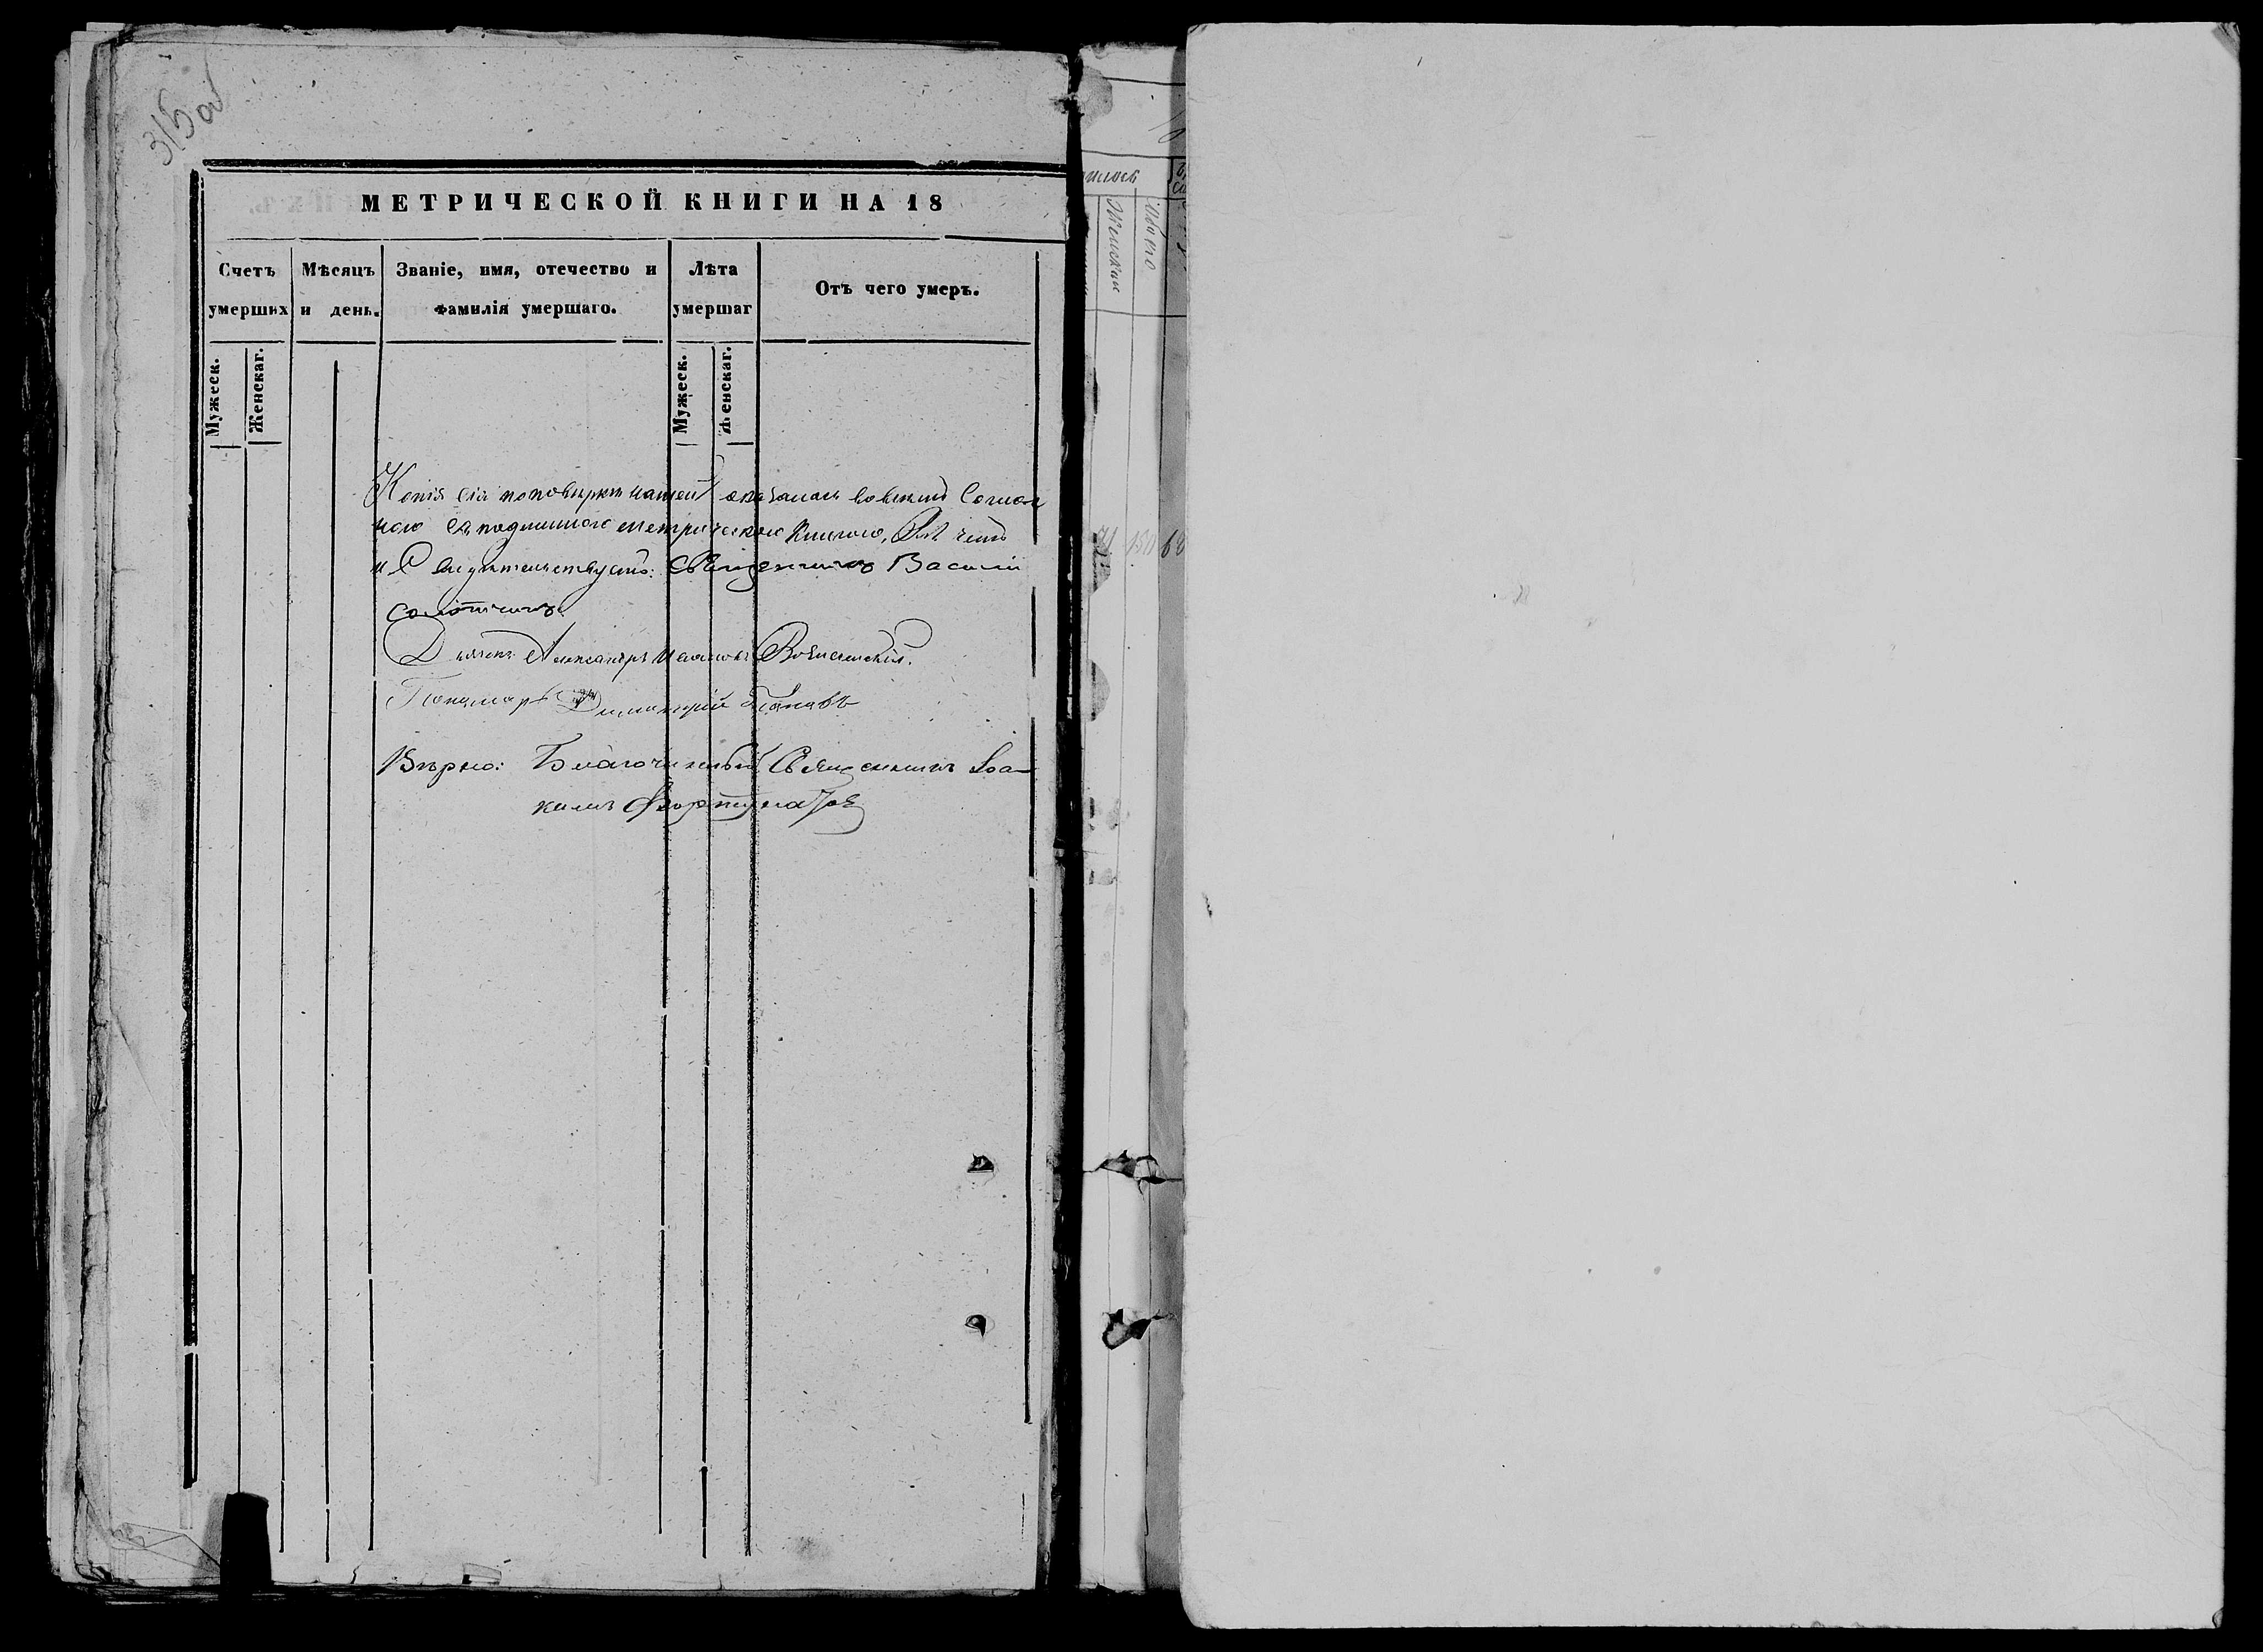 315 об
МЕТРИЧЕСКОЙ КНИГИ НА 18
Счетъ умерших
Мѣсяцъ и день.
Званіе, имя, отечество и фамилія умершаго.
Лѣта умершаг
Отъ чего умеръ.
Мужеск.
Женскаг.
Мужеск.
Женскаг.
Копія сія по повѣркѣ нашей оказалась во всемъ Соглас
ною съ подлинною метрическою книгою, въ чемъ
и Свидѣтельствуемъ: Священникъ Василій
Дьячекъ Александръ
Пономарь Димитрій Поповъ
Вѣрно: Благочинный Священникъ Іоа
кимъ Фортунатов
Женскаи
Обоего